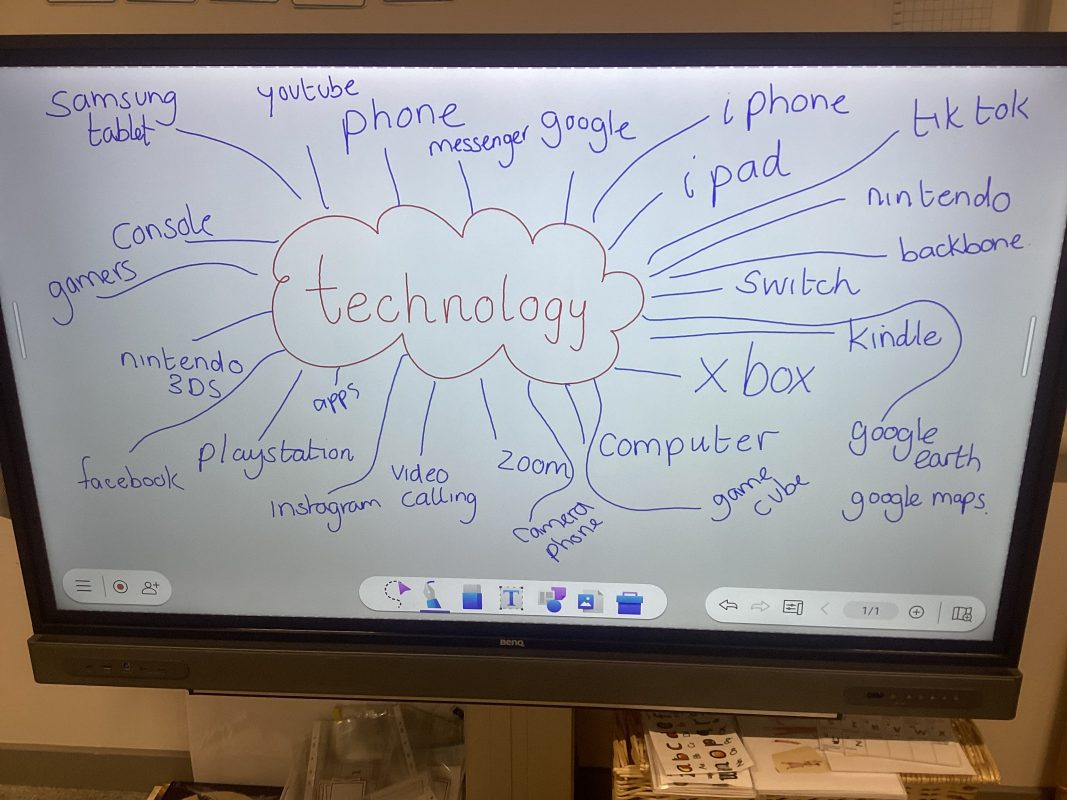 samsung
tablet
youtube
phone
messenger
google
i phone
i pad
tik tok
nintendo
backbone
switch
kindle
x box
google
earth
google maps.
console
gamers
technology
nintendo
3DS
apps
facebook
playstation
instagram
video
calling
zoom
camera
phone
computer
game
cube
T
1/1
BenQ